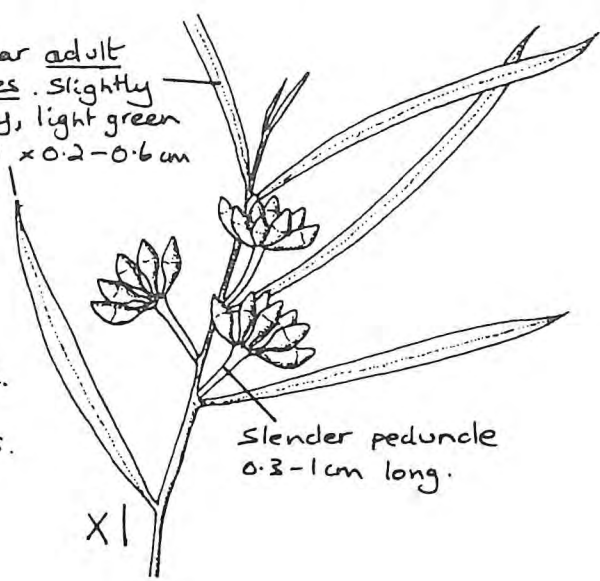 ar adult
es. Slightly
y, light green
x 0.2-0.6 cm
s.
Slender peduncle
0.3-1cm long.
X1